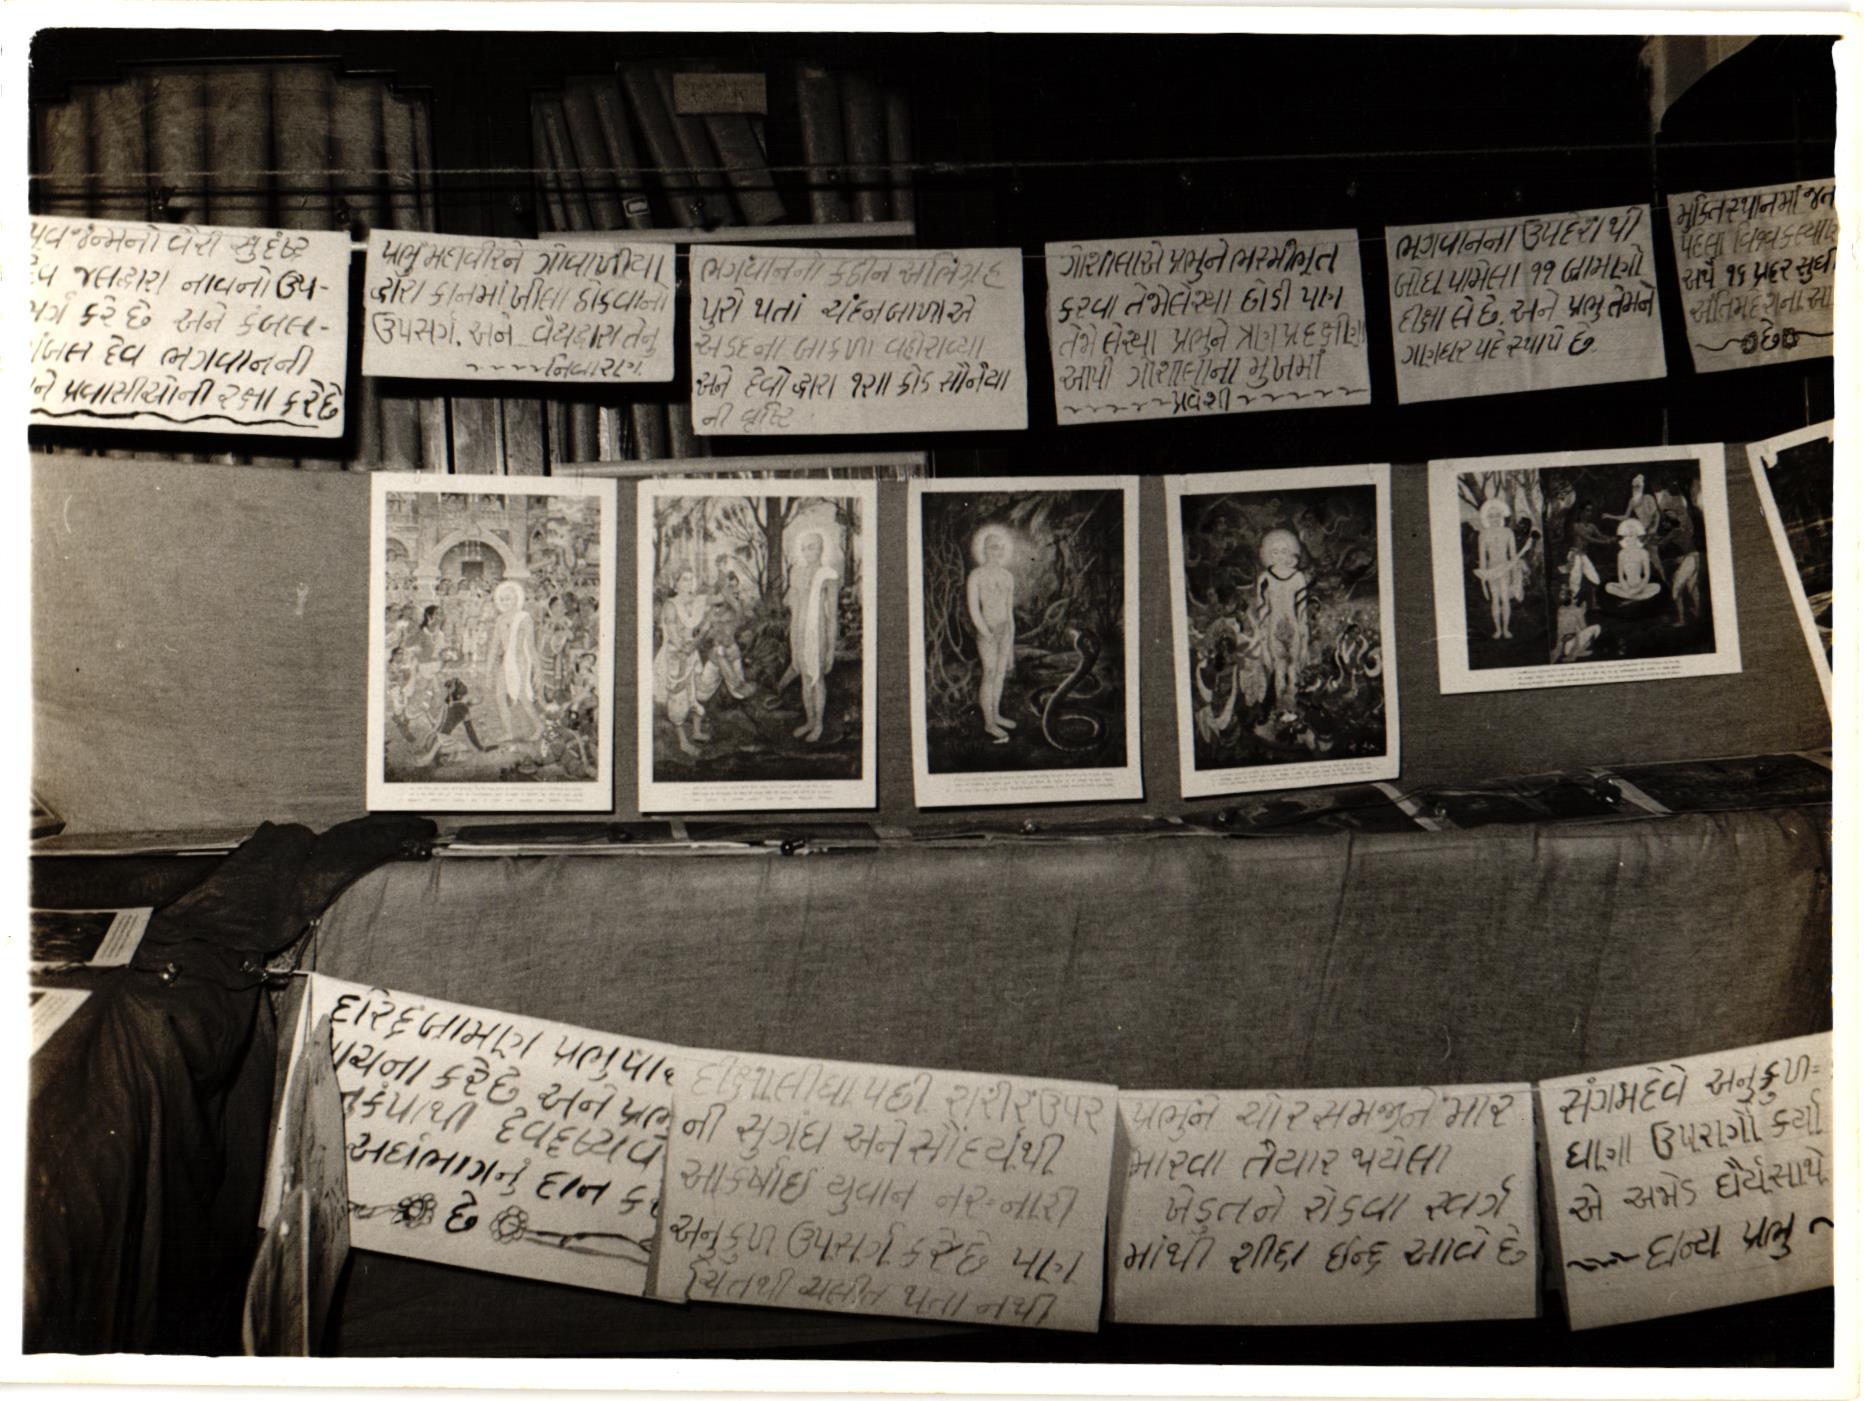 પૂર્વ જન્મનો વૈરી સુદંષ્ટ્ર
દેવ જલદ્વારા નાવનો ઉપ-
સર્ગ કરે છે અને કંબલ-
શંબલ દેવ ભગવાનની
અને પ્રવાસીઓની રક્ષા કરે છે
પ્રભુ મહાવીરને ગોવાળીયા
દ્વારા કાનમાં ખીલા ઠોકવાનો
ઉપસર્ગ. અને વૈદ્યદ્વારા તેનુ
નિવારણ.
ભગવાનનો કઠીન અભિગ્રહ
પુરો થતાં ચંદનબાળાએ
અડદના બાકળા વહોરાવ્યા
અને દેવો દ્વારા ૧૨ાા ક્રોડ સૌનેયા
ની વૃષ્ટિ
ગોશાલાએ પ્રભુને ભસ્મીભૂત
કરવા તેજોલેશ્યા છોડી પણ
તેજોલેશ્યા પ્રભુને ત્રણ પ્રદક્ષીણા
આપી ગોશાલાના મુખમાં
પ્રવેશી
ભગવાનના ઉપદેશથી
બોધ પામેલા ૧૧ બ્રામણો
દીક્ષા લે છે. અને પ્રભુ તેમને
ગણધર પદે સ્થાપે છે.
મુક્તિસ્થાનમાં જતા
પહેલા વિશ્વકલ્યાણ
અર્થે ૧૬ પ્રહર સુધી
અંતિમદેશના આ
છે
દરિદ્ર બ્રામણ પ્રભુપાસે
યાચના કરે છે અને પ્રભુ
અનુકંપાથી દેવદૂષ્યવ
અર્ધાભાગનું દાન કરે
છે
દીક્ષાલીધા પછી શરીર ઉપર
ની સુગંધ અને સૌંદર્યથી
આકર્ષાઇ યુવાન નર-નારી
અનુકુળ ઉપસર્ગ કરે છે પણ
ચિતથી ચલીત થતા નથી
પ્રભુને ચોર સમજીને માર
મારવા તૈયાર થયેલા
ખેડુતને રોકવા સ્વર્ગ
માંથી શીધ્ર ઇન્દ્ર આવે છે
સંગમદેવે અનુકુળ=
ઘણા ઉપસર્ગો કર્યા
એ અજોડ ધૈર્યસાથે
ધન્ય પ્રભુ